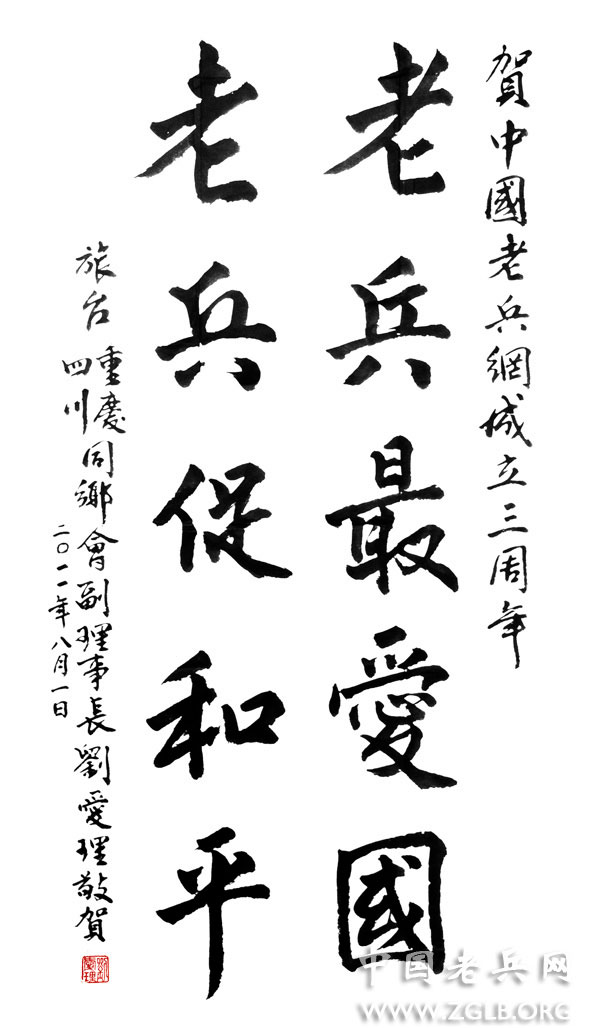 賀中國老兵網成立三周年
老兵最愛國
老兵促和平
旅台重慶四川同鄉會副理事長劉愛理敬賀
二〇一一年八月一日
中国老兵网
WWW.ZGLB.ORG